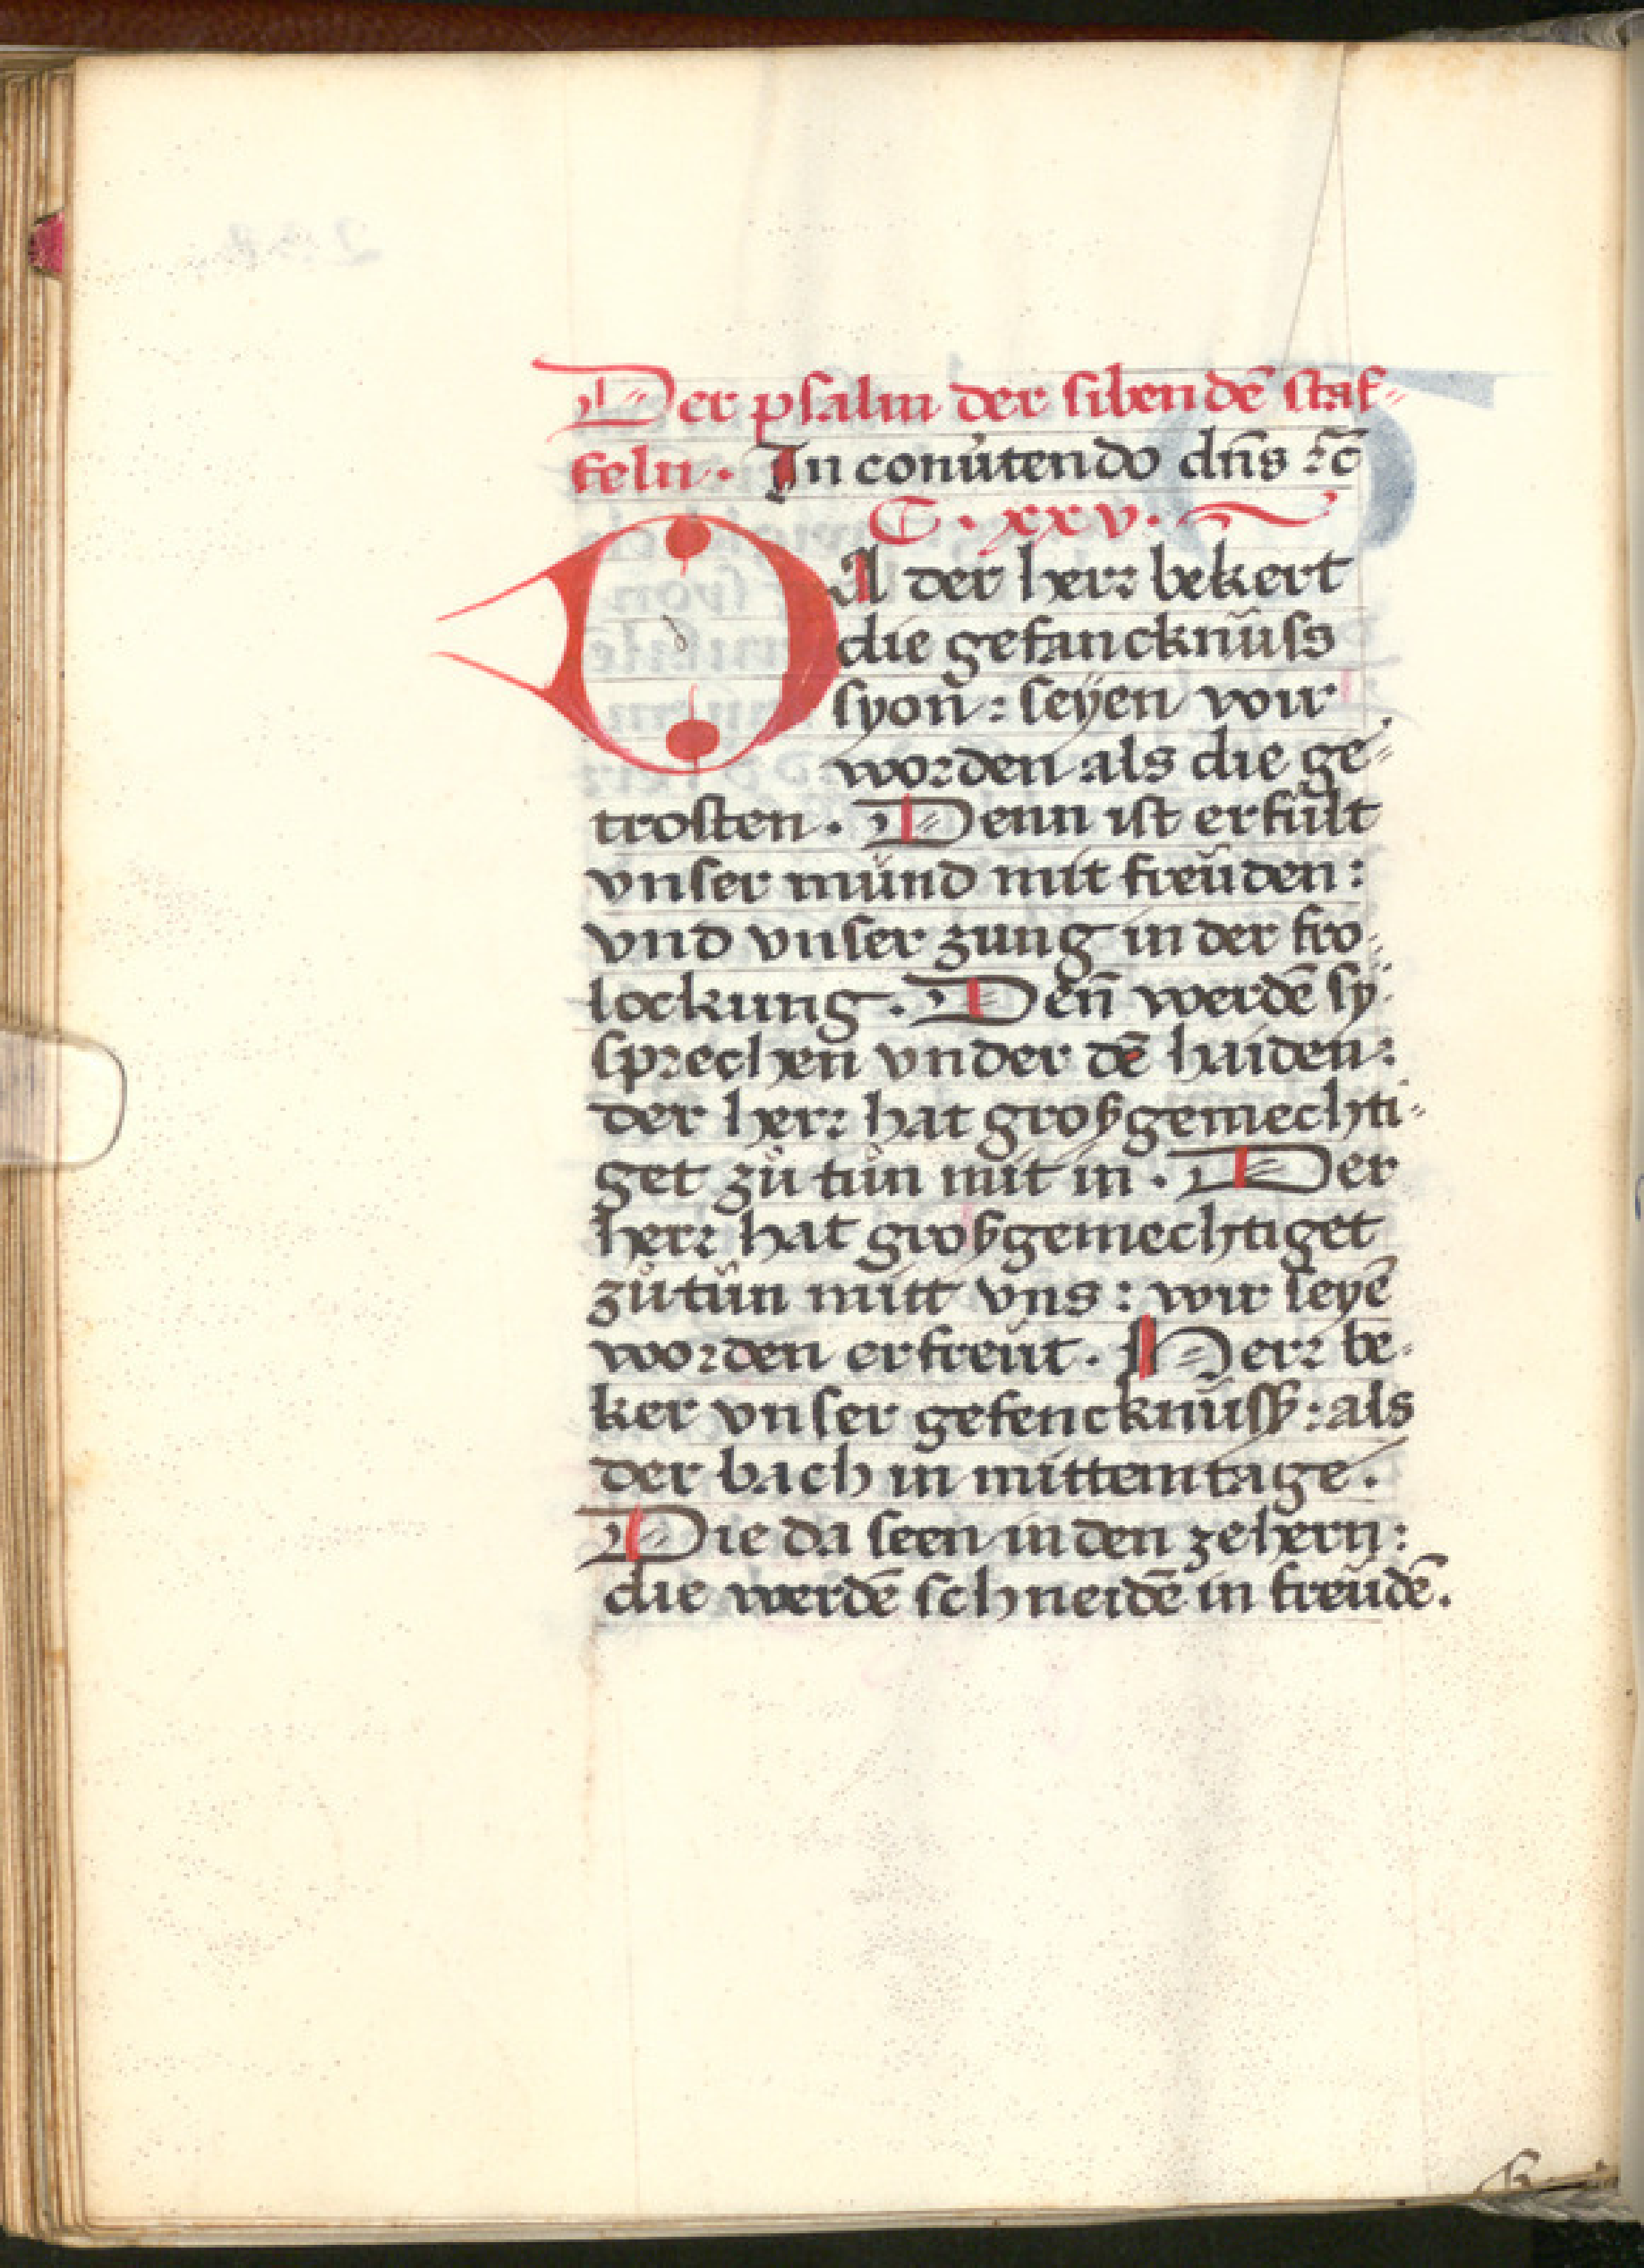 Der psalm der sibendē staf⸗
feln. In conu̾tendo dn̄s ⁊c̄
C. xxv.
DA der herꝛ bekert
die gefancknŭſs
ſyon̄: ſeÿen wir
woꝛden als die ge⸗
troſten. Denn iſt erfŭlt
vnſer mŭnd mit freŭden:
vnd vnſer zung in der fro⸗
lockung. Den̄ werdē ſÿ
ſpꝛechen vnder dē haiden:
der herꝛ hat groß gemechti⸗
get zů tůn mit in. Der
herꝛ hat groß gemechtiget
zů tůn mitt vns: wir ſeyē
woꝛden erfreŭt. Herꝛ be⸗
ker vnſer gefencknŭſß: als
der bach in mittemtage.
Die da ſeen in den zehern:
die werdē ſchneidē in freŭdē.